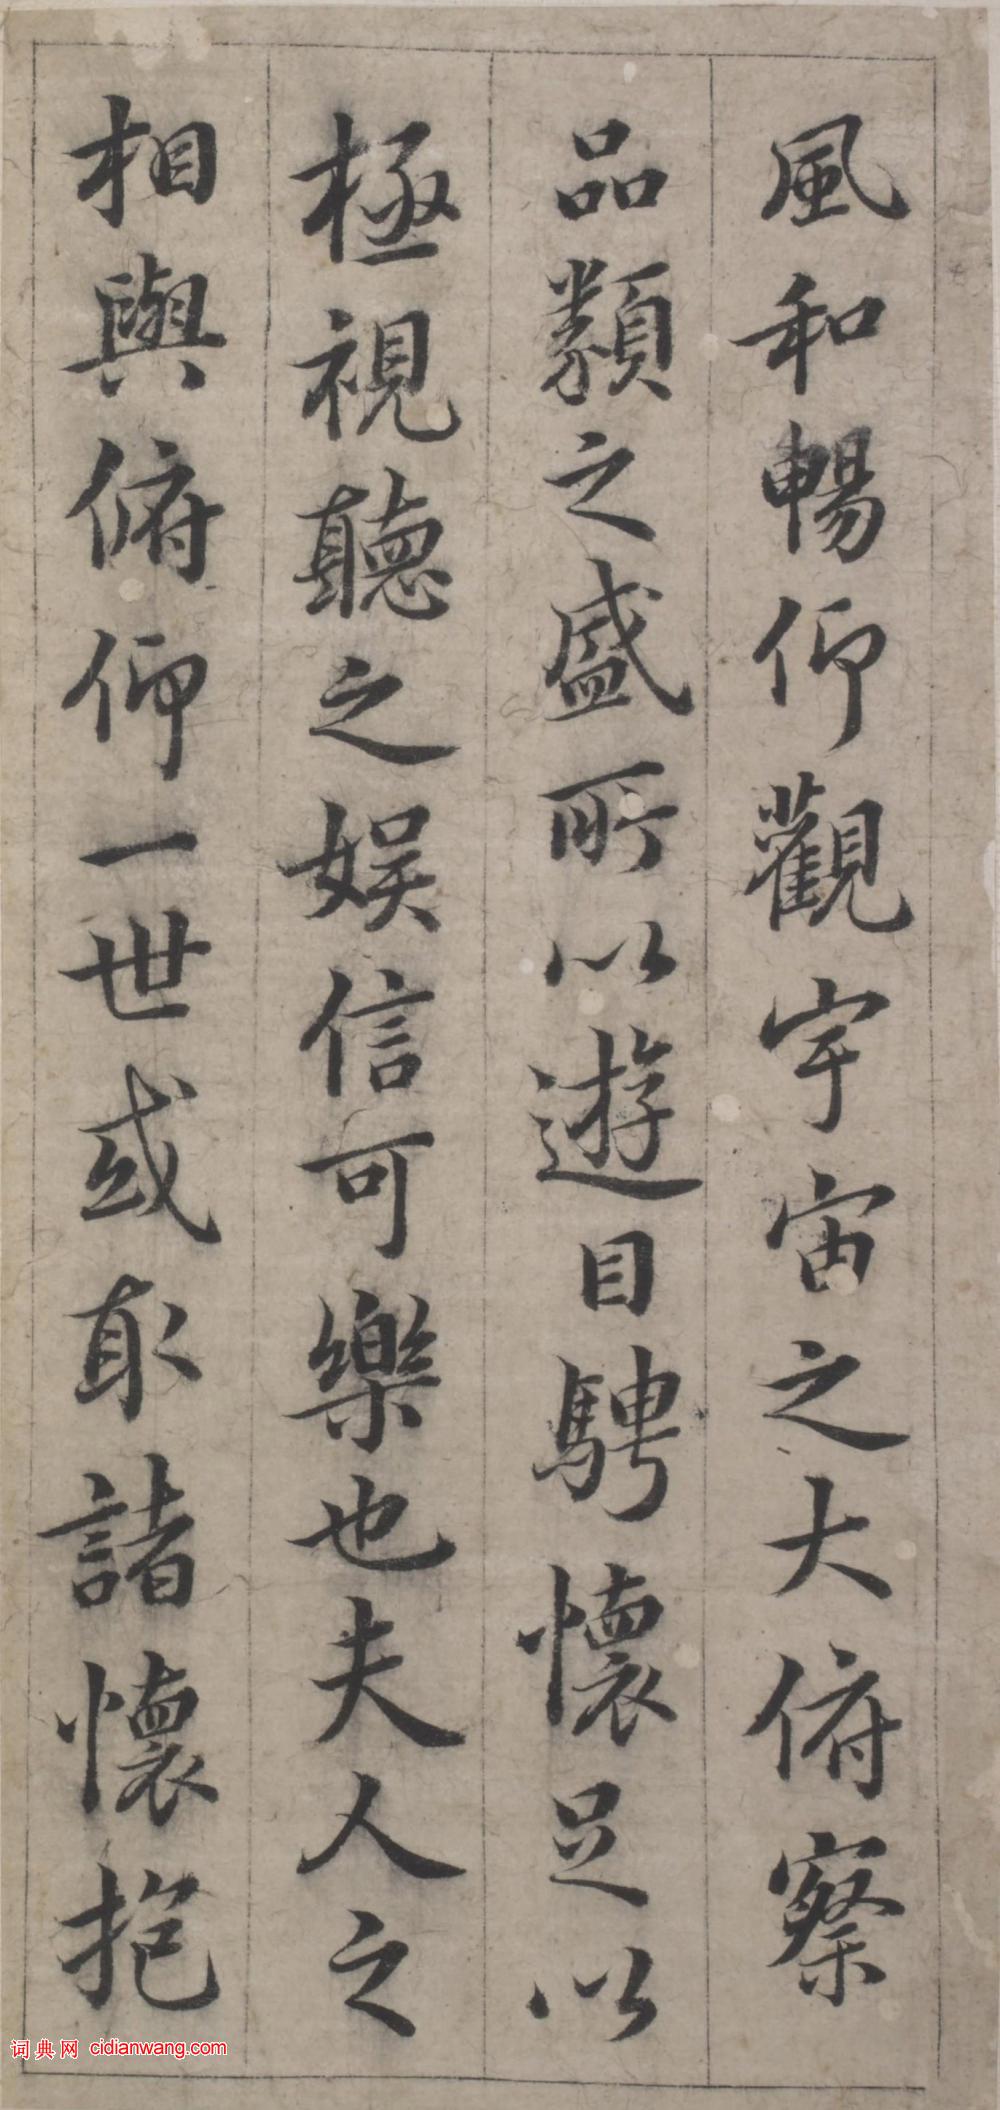 風和暢仰觀宇宙之大俯察
品類之盛所以遊目騁懷足以
極視聽之娱信可樂也夫人之
相與俯仰一世或取諸懷抱
词典网 cidianwang.com